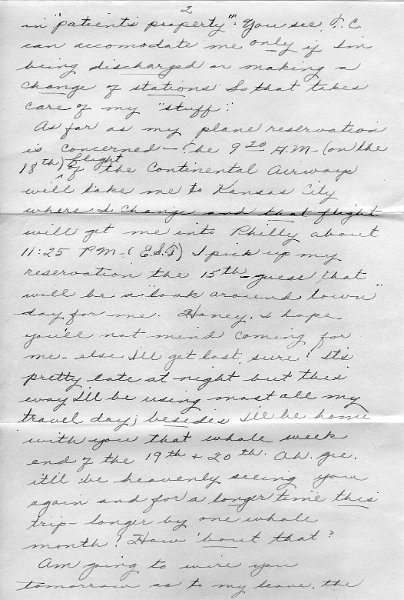 2
in "patient's property". You see, T.C.
can accomodate me only if I'm
being discharged or making a
change of stations so that takes
care of my "stuff."
As far as my plane reservation
is concerned — The 9 20 A.M. (on the
18th) flight of the Continental Airways
will take me to Kansas City
where I change and that flight
will get me into Philly about
11:25 P.M. (E.S.T.) I pick up my
reservation the 15th - guess that
will be a "look around town"
day for me. Honey, I hope
you'll not mind coming for
me - else I'll get lost sure! It's
pretty late at night but this
way I'll be using most all my
travel day; besides I'll be home
with you that whole week
end of the 19th & 20th. Oh, gee.
it'll be heavenly seeing you
again and for a longer time this
trip - longer by one whole
month! How 'bout that?
Am going to wire you
tomorrow as to my leave, the